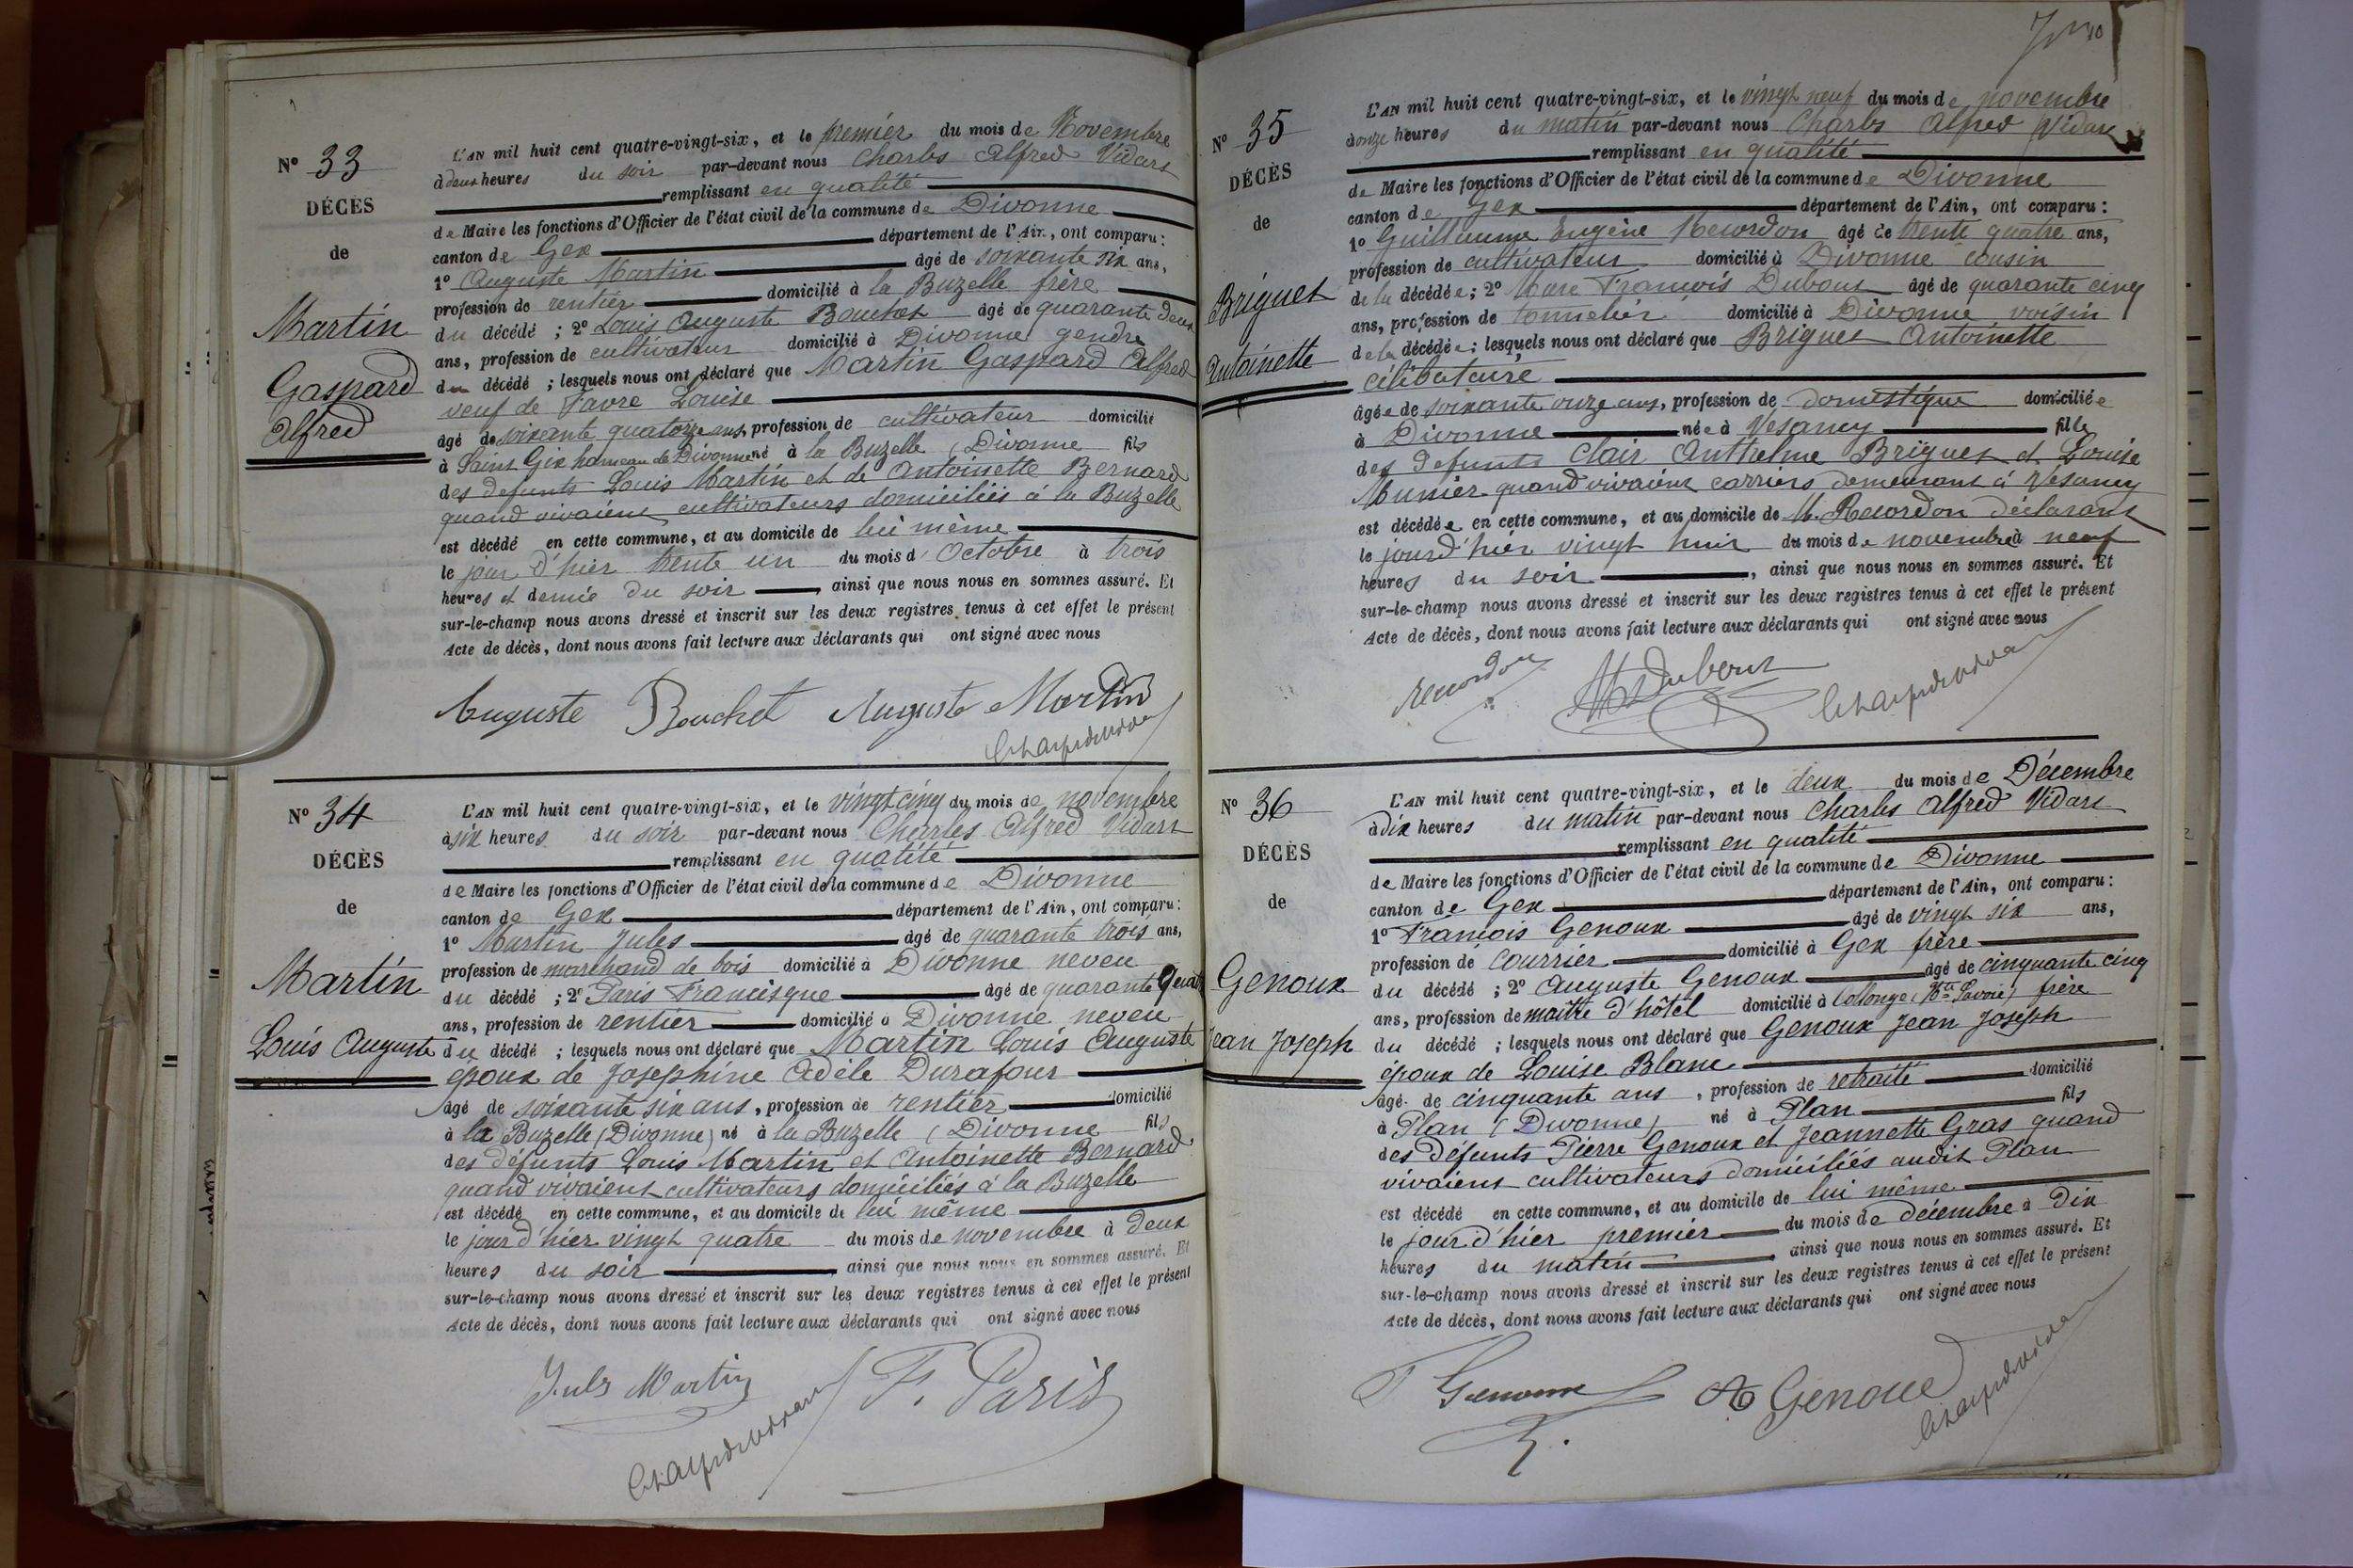 N° 33
DÉCÈS
de
Martin
Gaspard
Alfred
L'AN mil huit cent quatre-vingt-six, et le premier du mois de Novembre
à deux heures du soir par-devant nous Charles Alfred Vidart
remplissant en qualité
de Maire les fonctions d'Officier de l'état civil de la commune de Divonne
canton de Gex département de l'Ain, ont comparu :
1° Auguste Martin âgé de soixante six ans,
profession de rentier domicilié à la Buzelle frère
du décédé ; 2° Louis Auguste Bouchet âgé de quarante deux
ans, profession de cultivateur domicilié à Divonne gendre
du décédé ; lesquels nous ont déclaré que Martin Gaspard Alfred
veuf de Favre Louise
âgé de soixante quatorze ans, profession de cultivateur domicilié
à Saint Gix hameau de Divonne né à la Buzelle (Divonne fils
des défunts Louis Martin et de Antoinette Bernard
quand vivaient cultivateurs domiciliés à la Buzelle
est décédé en cette commune, et au domicile de lui même
le jour d'hier trente un du mois d'Octobre à trois
heures et demie du soir , ainsi que nous nous en sommes assuré. Et
sur-le-champ nous avons dressé et inscrit sur les deux registres tenus à cet effet le présent
Acte de décès, dont nous avons fait lecture aux déclarants qui ont signé avec nous
Auguste Bouchet Auguste Martin
N° 34
DÉCÈS
de
Martin
Louis Auguste
L'AN mil huit cent quatre-vingt-six, et le vingt cinq du mois de novembre
à six heures du soir par-devant nous Charles Alfred Vidart
remplissant en qualité
de Maire les fonctions d'Officier de l'état civil de la commune de Divonne
canton de Gex département de l'Ain, ont comparu :
1° Martin Jules âgé de quarante trois ans,
profession de marchand de bois domicilié à Divonne neveu
du décédé ; 2° Paris Francisque âgé de quarante quat
ans, profession de rentier domicilié à Divonne neveu
du décédé ; lesquels nous ont déclaré que Martin Louis Auguste
époux de Josephine Adèle Durafour
âgé de soixante six ans, profession de rentier domicilié
à la Buzelle (Divonne) né à la Buzelle (Divonne fils
des défunts Louis Martin et Antoinette Bernard
quand vivaient cultivateurs domiciliés à la Buzelle
est décédé en cette commune, et au domicile de lui même
le jour d'hier vingt quatre du mois de novembre à deux
heures du soir , ainsi que nous nous en sommes assuré. Et
sur-le-champ nous avons dressé et inscrit sur les deux registres tenus à cet effet le présent
Acte de décès, dont nous avons fait lecture aux déclarants qui ont signé avec nous
Jules Martin F. Paris
N° 35
DÉCÈS
de
Briguet
Antoinette
L'AN mil huit cent quatre-vingt-six, et le vingt neuf du mois de novembre
à onze heures du matin par-devant nous Charles Alfred Vidart
remplissant en qualité
de Maire les fonctions d'Officier de l'état civil de la commune de Divonne
canton de Gex département de l'Ain, ont comparu :
1° Guillaume Eugène Recordon âgé de trente quatre ans,
profession de cultivateur domicilié à Divonne cousin
de la décédée ; 2° Marc François Dubout âgé de quarante cinq
ans, profession de tonnelier domicilié à Divonne voisin
de la décédée ; lesquels nous ont déclaré que Briguet Antoinette
célibataire
âgée de soixante onze ans, profession de domestique domiciliée
à Divonne née à Vesancy fille
des défunts Clair Anthelme Briguet et Louise
Munier quand vivaient carriers demeurant à Vesancy
est décédée en cette commune, et au domicile de M. Recordon déclarant
le jour d'hier vingt huit du mois de novembre à neuf
heures du soir , ainsi que nous nous en sommes assuré. Et
sur-le-champ nous avons dressé et inscrit sur les deux registres tenus à cet effet le présent
Acte de décès, dont nous avons fait lecture aux déclarants qui ont signé avec nous
recordon Dubout
N° 36
DÉCÈS
de
Genoux
Jean Joseph
L'AN mil huit cent quatre-vingt-six, et le deux du mois de Décembre
à dix heures du matin par-devant nous Charles Alfred Vidart
remplissant en qualité
de Maire les fonctions d'Officier de l'état civil de la commune de Divonne
canton de Gex département de l'Ain, ont comparu :
1° François Genoux âgé de vingt six ans,
profession de courrier domicilié à Gex frère
du décédé ; 2° Auguste Genoux âgé de cinquante cinq
ans, profession de maître d'hôtel domicilié à Collonge (Hte Savoie) frère
du décédé ; lesquels nous ont déclaré que Genoux Jean Joseph
époux de Louise Blanc
âgé de cinquante ans , profession de retraité domicilié
à Plan (Divonne) né à Plan fils
des défunts Pierre Genoux et Jeannette Gras quand
vivaient cultivateurs domiciliés audit Plan
est décédé en cette commune, et au domicile de lui même
le jour d'hier premier du mois de décembre à dix
heures du matin , ainsi que nous nous en sommes assuré. Et
sur-le-champ nous avons dressé et inscrit sur les deux registres tenus à cet effet le présent
Acte de décès, dont nous avons fait lecture aux déclarants qui ont signé avec nous
A Genoud